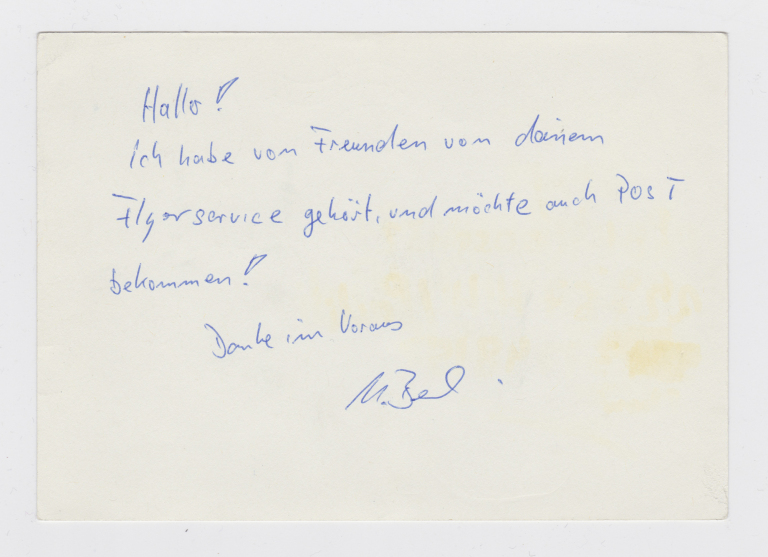 Hallo!
Ich habe von Freunden von deinem
Flyerservice gehört, und möchte auch POST
bekommen!
Danke im Voraus